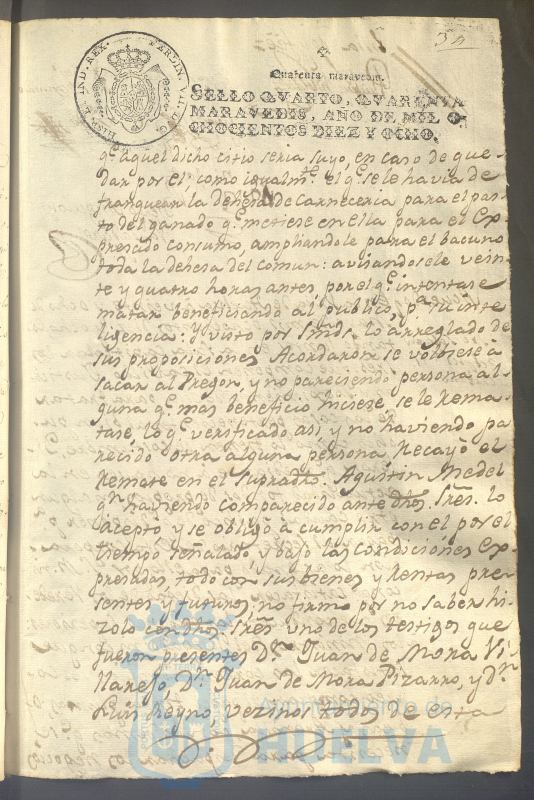 34
HISP. ET IND. REX. FERDIN. VII. D. G.
Quarenta maravedis.
SELLO QVARTO, QVARENTA
MARAVEDIS, AÑO DE MIL O-
CHOCIENTOS DIEZ Y OCHO.
qe. aquel dicho citio seria suyo, en caso de que-
dar por el; como igualmte. el qe. se le havia de
franquear la dehesa de Carneceria para el pas-
to del ganado qe. metiese en ella para el Ex-
presado consumo, ampliandole para el bacuno
toda la dehesa del comun: avisandosele vein-
te y quatro horas antes por el qe. intentase
matar beneficiando al publico, pa. su inte-
ligencia: y visto por Smds. lo arreglado de
sus proposiciones Acordaron se volbiese à
sacar al Pregon, y no pareciendo persona al-
guna qe. mas beneficio hiciese, se le Rema-
tase, lo qe. verificado asi, y no haviendo pa
recido otra alguna persona Recayó el
Remate en el Supradho. Agustin Medel
qn. haviendo comparecido ante dhos. Sres. lo
aceptó y se obligó à cumplir con el por el
tiempo señalado, y bajo las condiciones Ex-
presadas, todo con sus bienes y Rentas pre-
sentes y futuros; no firmó por no saber hi-
zolo con dhos. Sres. uno de los testigos que
fueron presentes Dn. Juan de Mora Vi-
llarejo, Dn. Juan de Mora Pizarro, y Dn.
Luis Reyno, vezinos todos de esta
Ayuntamiento de
HUELVA